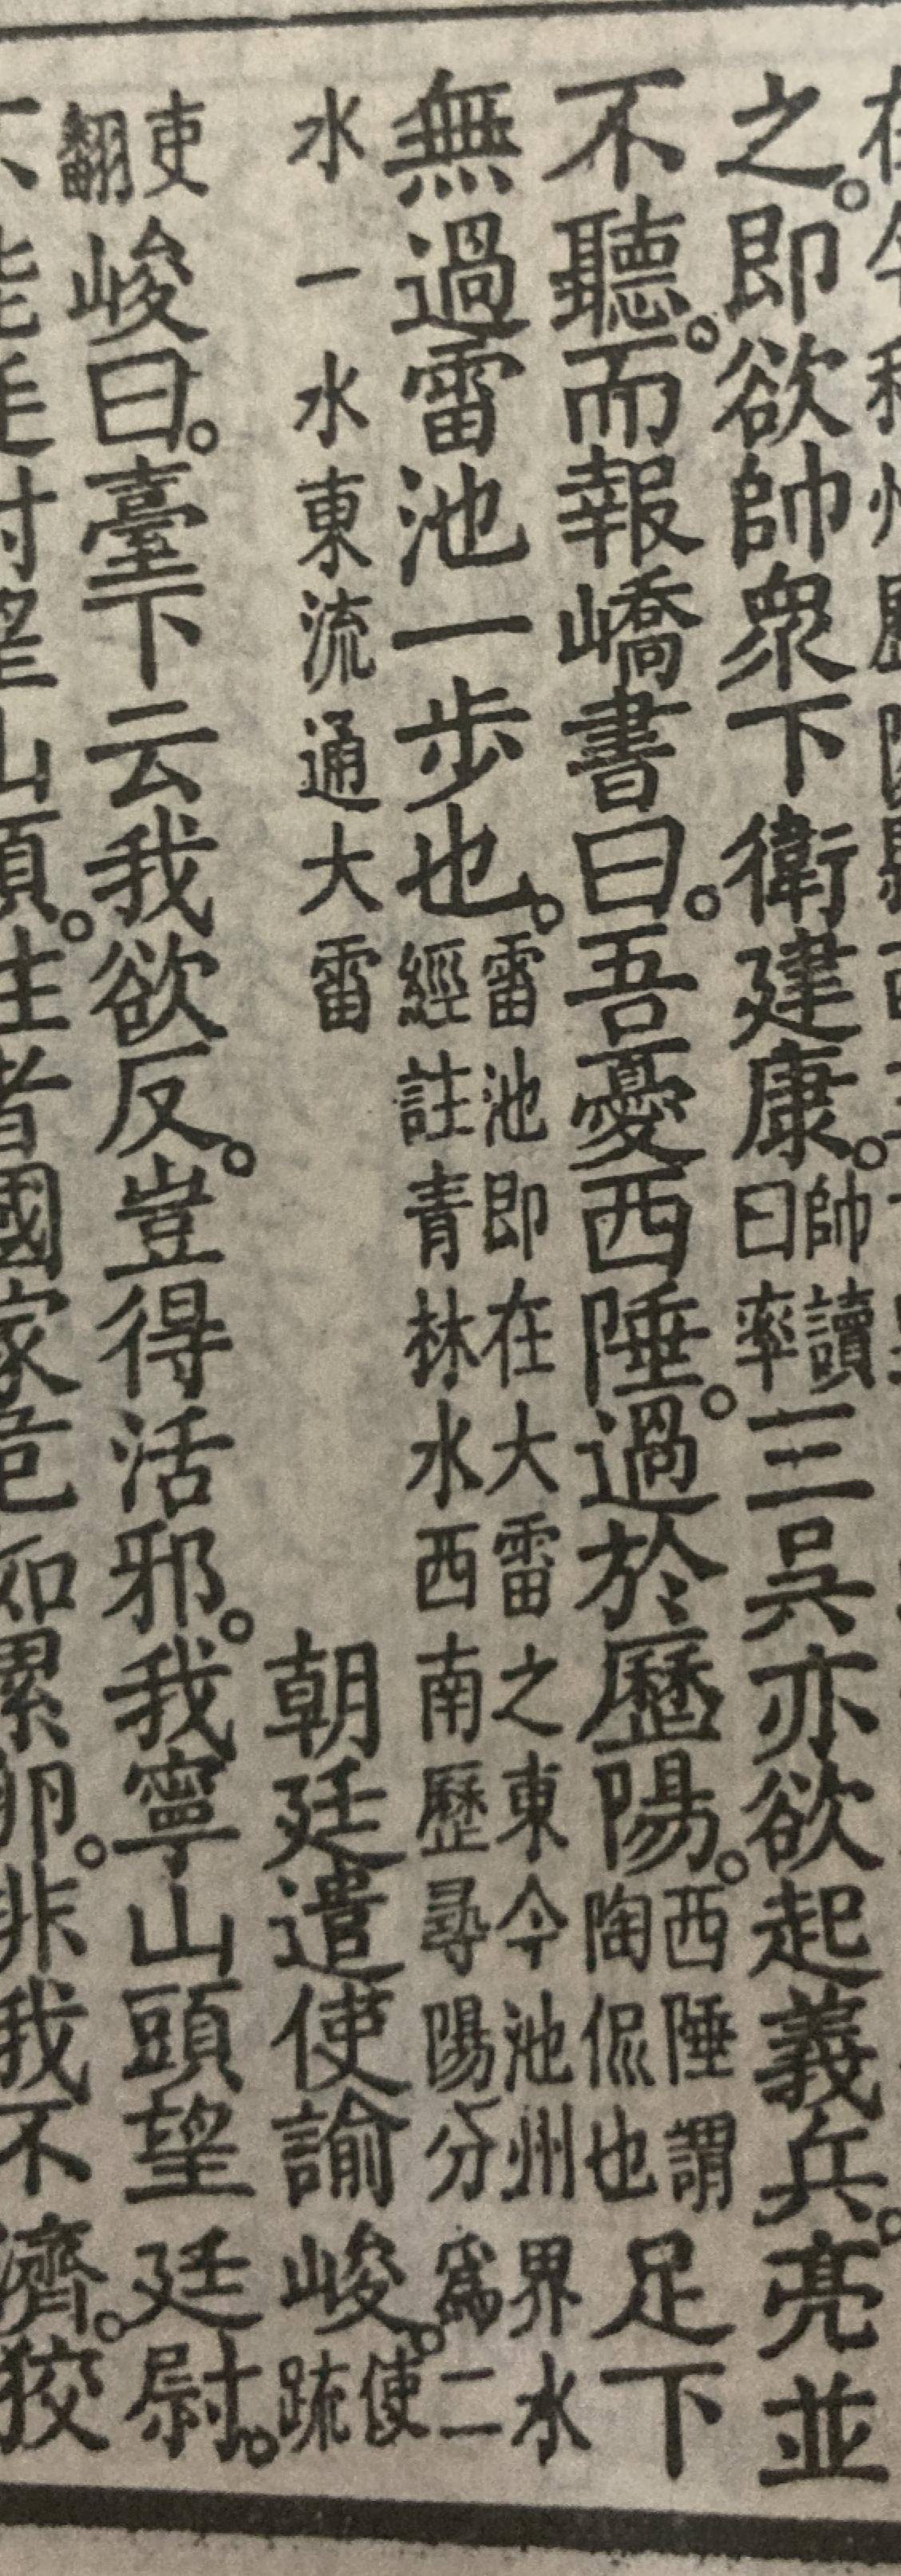 之。即欲帥衆下衛建康。帥讀曰率三吳亦欲起義兵。亮並
不聽。而報嶠書曰。吾憂西陲。過於歷陽。西陲謂陶侃也足下
無過雷池一步也。雷池即在大雷之東今池州界水經註青林水西南歷尋陽分爲二
水一水東流通大雷朝廷遣使諭峻。使疏
吏翻峻曰。臺下云我欲反。豈得活邪。我寧山頭望廷尉。
不能廷尉望山頭。往者國家危如累卵。非我不濟。狡